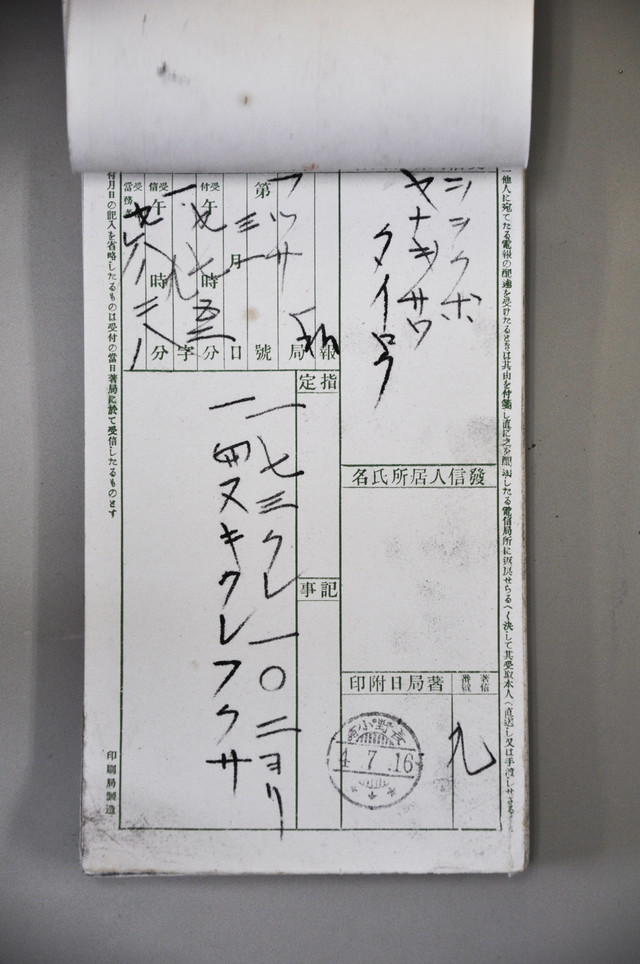 一他人に宛てたる電報の配達を受けたるときは其由を付箋し直に之を配達したる電信局所に返戻せらるへく決して其受取本人へ直送し又は手渡しせさる
シシクホ
ヤナギサワ
發信人居所氏名
著信番號
九
著局日附印
4.7.16
報局
第號
フツサ
月日
受付午時分
字
受信午時分
指定
記事
一七三クレ一〇二ヨリ
一四ヌキクレフクサ
付月日の記入を省略したるものは受付の當日著局に於て受信したるものとす
印刷局製造